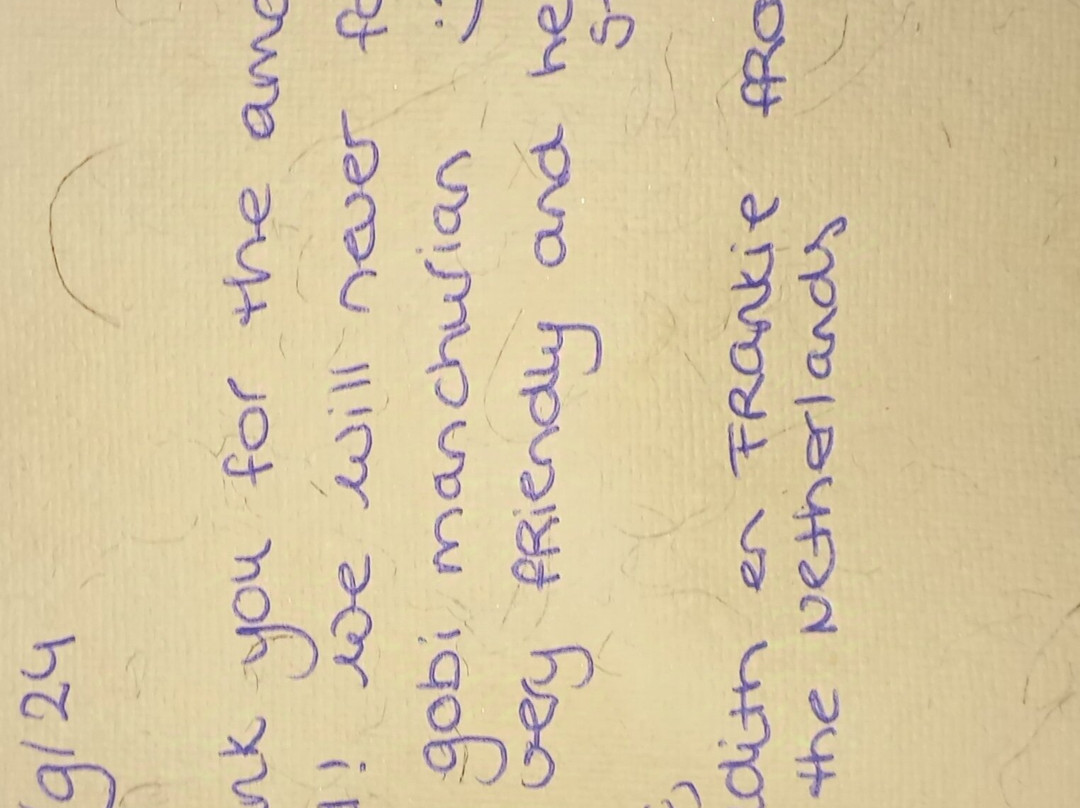 9/24
you for the
we will never
gobi manchurian :)
very fRiendly and
en FRankie fRo
the Netherlands